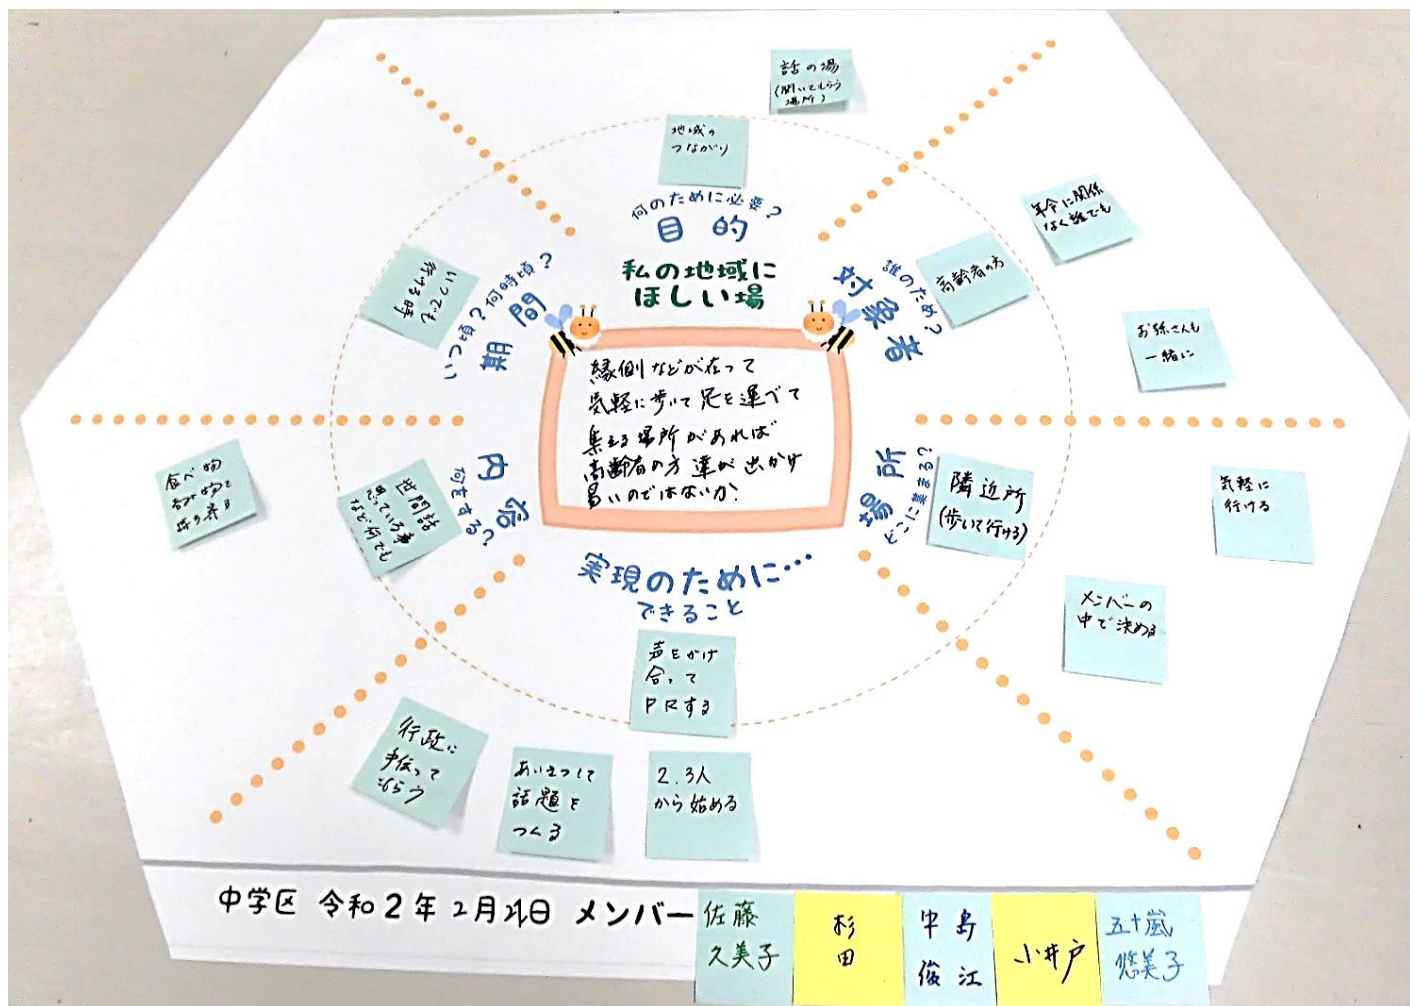 話の場
(聞いてもらう
場所)
地域の
つながり
何のために必要?
目的
私の地域に
ほしい場
年令に関係
なく誰でも
高齢者の方
お孫さんも
一緒に
誰のため?
対象者
いつでも
行ける時
いつ頃?何時頃?
期間
縁側などが在って
気軽に歩いて足を運べて
集える場所があれば
高齢者の方達が出かけ
易いのではないか?
食べ物
飲み物を
持ち寄る
世間話
思っている事
など何でも
内容
何をする?
場所
どこに集まる?
隣近所
(歩いて行ける)
気軽に
行ける
メンバーの
中で決める
実現のために…
できること
声をかけ
合って
PRする
行政に
手伝って
もらう
あいさつして
話題を
つくる
2.3人
から始める
中学区 令和2年2月21日 メンバー
佐藤
久美子
杉
田
中島
俊江
小井戸
五十嵐
悠美子